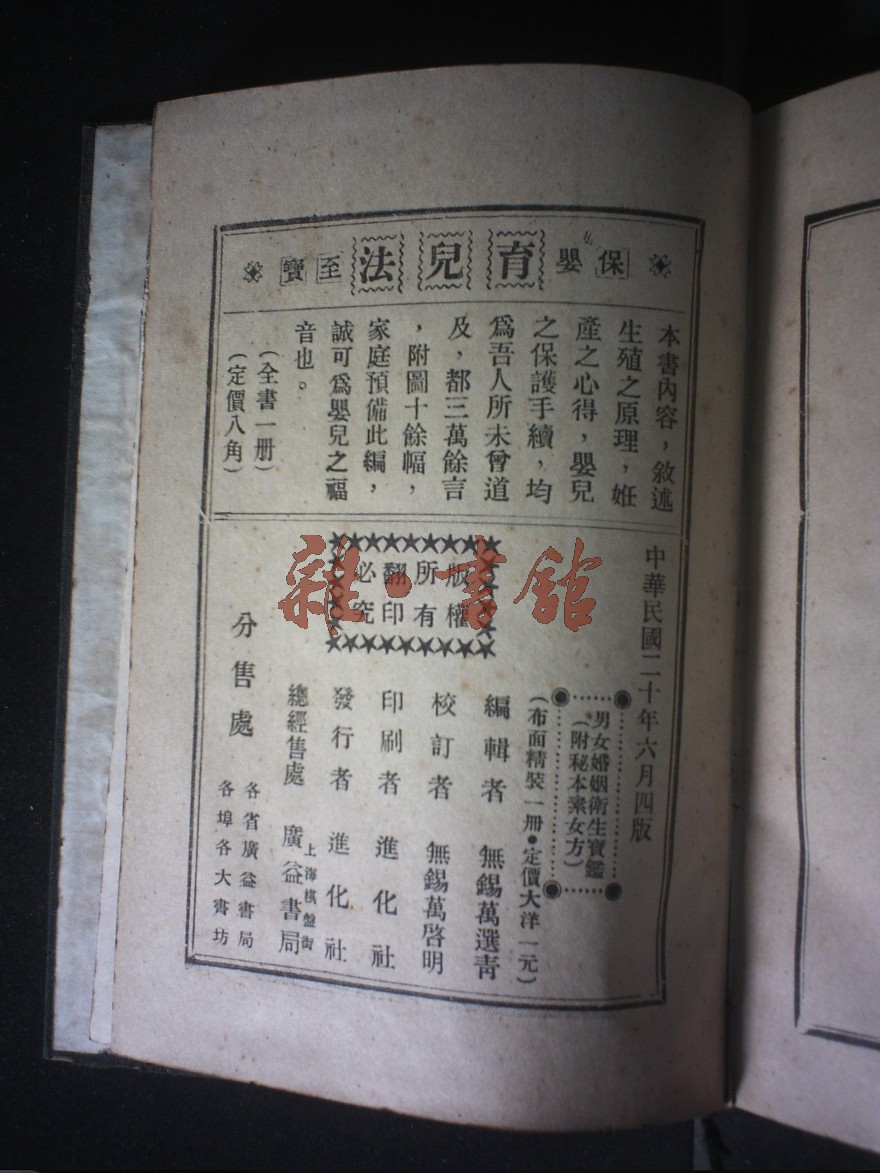 保嬰 育兒法 至寶
本書內容，敘述
生殖之原理，姙
產之心得，嬰兒
之保護手續，均
爲吾人所未曾道
及，都三萬餘言
，附圖十餘幅，
家庭預備此編，
誠可爲嬰兒之福
音也。
（全書一册）
（定價八角）
中華民國二十年六月四版
男女婚姻衛生寶鑑
（附秘本素女方）
（布面精裝一册●定價大洋一元）
版權
所有
翻印
必究
編輯者 無錫萬選青
校訂者 無錫萬啓明
印刷者 進化社
發行者 進化社
總經售處 上海棋盤街 廣益書局
分售處
各省廣益書局
各埠各大書坊
雜·書館